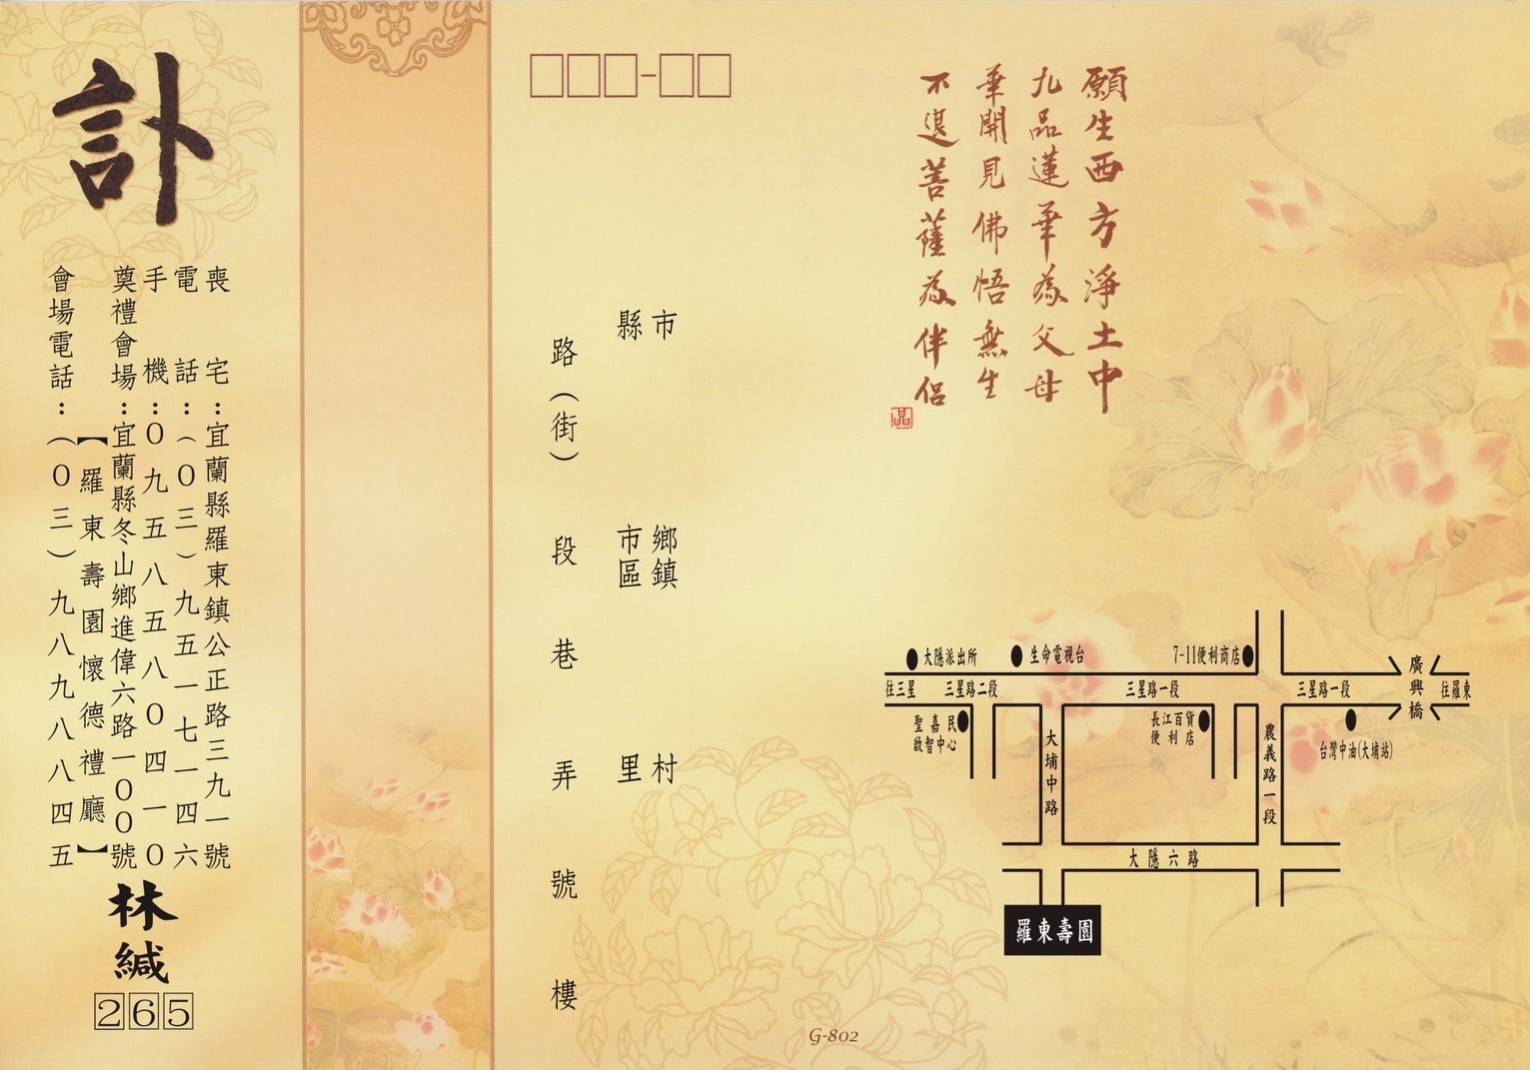 願生西方淨土中
九品蓮華為父母
華開見佛悟無生
不退菩薩為伴侶
市
縣
鄉鎮
市區
村
里
路（街） 段 巷 弄 號 樓
訃
喪宅：宜蘭縣羅東鎮公正路三九一號
電話：（０三）九五一七一四六
手機：０九五八五八０四一０
奠禮會場：宜蘭縣冬山鄉進偉六路一００號
【羅東壽園懷德禮廳】
會場電話：（０三）九八九八八四五
林緘
265
大隱派出所
生命電視台
7-11便利商店
往三星
三星路二段
三星路一段
三星路一段
廣興橋
往羅東
聖嘉民
啟智中心
大埔中路
長江百貨
便利店
農義路一段
台灣中油(大埔站)
大隱六路
羅東壽園
G-802